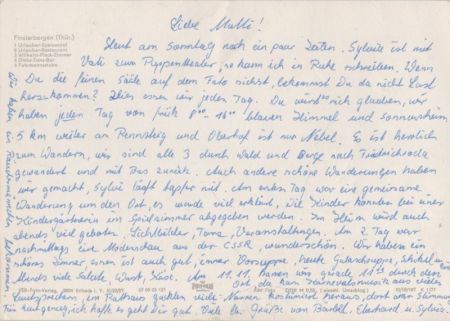 Liebe Mutti!
Finsterbergen (Thür.)
1 Urlauber-Speisesaal
2 Urlauber-Restaurant
3 Wilhelm-Pieck-Zimmer
4 Diana-Tanz-Bar
5 Kaminzimmer
Heut am Sonntag noch ein paar Zeilen. Sylvie ist mit
Vati zum Puppentheater, so kann ich in Ruhe schreiben. Wenn
Du die feinen Säle auf dem Foto siehst, bekommst Du da nicht Lust
herzukommen? Hier essen wir jeden Tag. Du wirst mir glauben, wir
haben jeden Tag von früh 8⁰⁰-16⁰⁰ blauen Himmel und Sonnenschein
5 km weiter am Rennsteig und Oberhof ist nur Nebel. Es ist herrlich
zum Wandern, wir sind alle 3 durch Wald und Berge nach Friedrichroda
gewandert und mit Bus zurück. Auch andere schöne Wanderungen haben
wir gemacht, Sylvie läuft tapfer mit. Am ersten Tag war eine gemeinsame
Wanderung um den Ort, es wurde viel erklärt, die Kinder konnten bei einer
Kindergärtnerin im Spielzimmer abgegeben werden. Im Heim wird auch
abends viel geboten. Lichtbilder, Tanz, Veranstaltungen. Am 2. Tag war
nachmittags eine Modenschau aus der CSSR wunderschön. Wir haben ein
schönes Zimmer, essen ist auch gut, immer Vorsuppe, heute Gulaschsuppe,
Abends viele Salate, Wurst, Käse. Am 11.11. kamen wir gerade 11¹¹ durch den
Ort da kam Karnevalsmusik aus vielen
Lautsprechern, im Rathaus guckten viele Narren kostümiert heraus, dort war Stimmung
Für heut genug, ich hoffe es geht Dir gut. Viele lb. Grüße von Bärbel, Eberhard u. Sylvie.
Wir haben ein
bekommen.